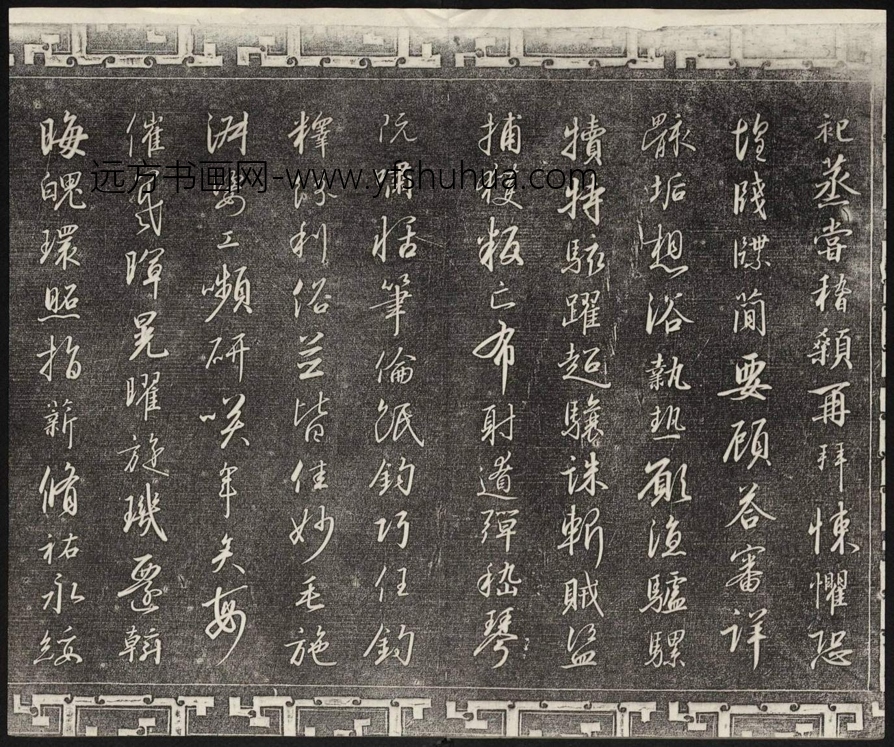 祀蒸嘗稽顙再拜悚懼恐
惶牋牒簡要顧荅審詳
骸垢想浴執熱願涼驢騾
犢特駭躍超驤誅斬賊盜
捕獲叛亡布射遼彈嵇琴
阮嘯恬筆倫紙鈞巧任釣
釋紛利俗並皆佳妙毛施
淑姿工嚬研咲年矢每
催羲暉晃曜旋璣懸斡
晦魄環照指薪脩祐永綏
远方书画网-www.yfshuhua.com